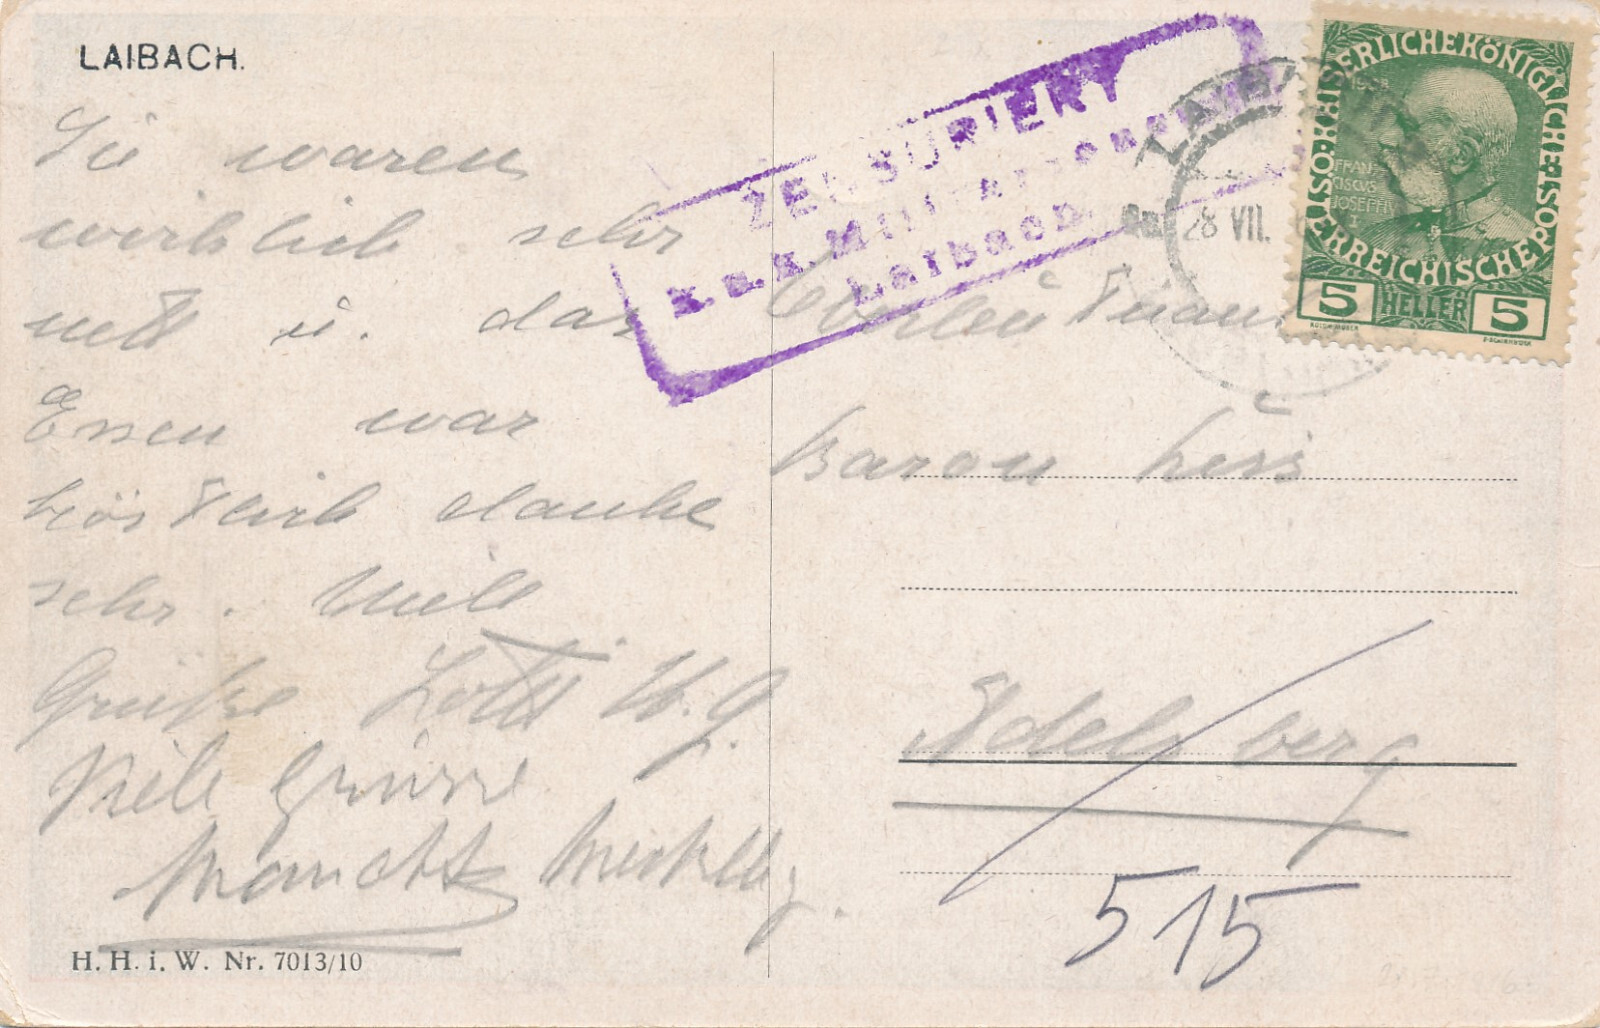 LAIBACH.
Sie waren
wirklich sehr
nett u. das
Essen war
köstlich danke
sehr. Viele
Grüße Lotte
Viele Grüsse
H. H. i. W. Nr. 7013/10
ZENSURIERT
K.u.K. Militärzensur
Laibach.
LAIBACH
28 VII.
KAISERLICHE KÖNIGLICHE
ÖSTERREICHISCHE POST
1908
FRAN
CISCVS
JOSEPH
I
5 HELLER 5
Oberleutnant
Baron
Adelsberg
515